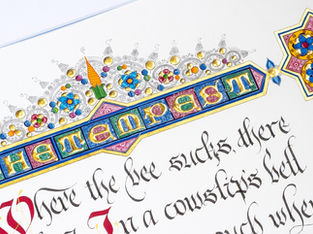 HE TEMPEST
Where the bee sucks, there
In a cowslip's bell
when